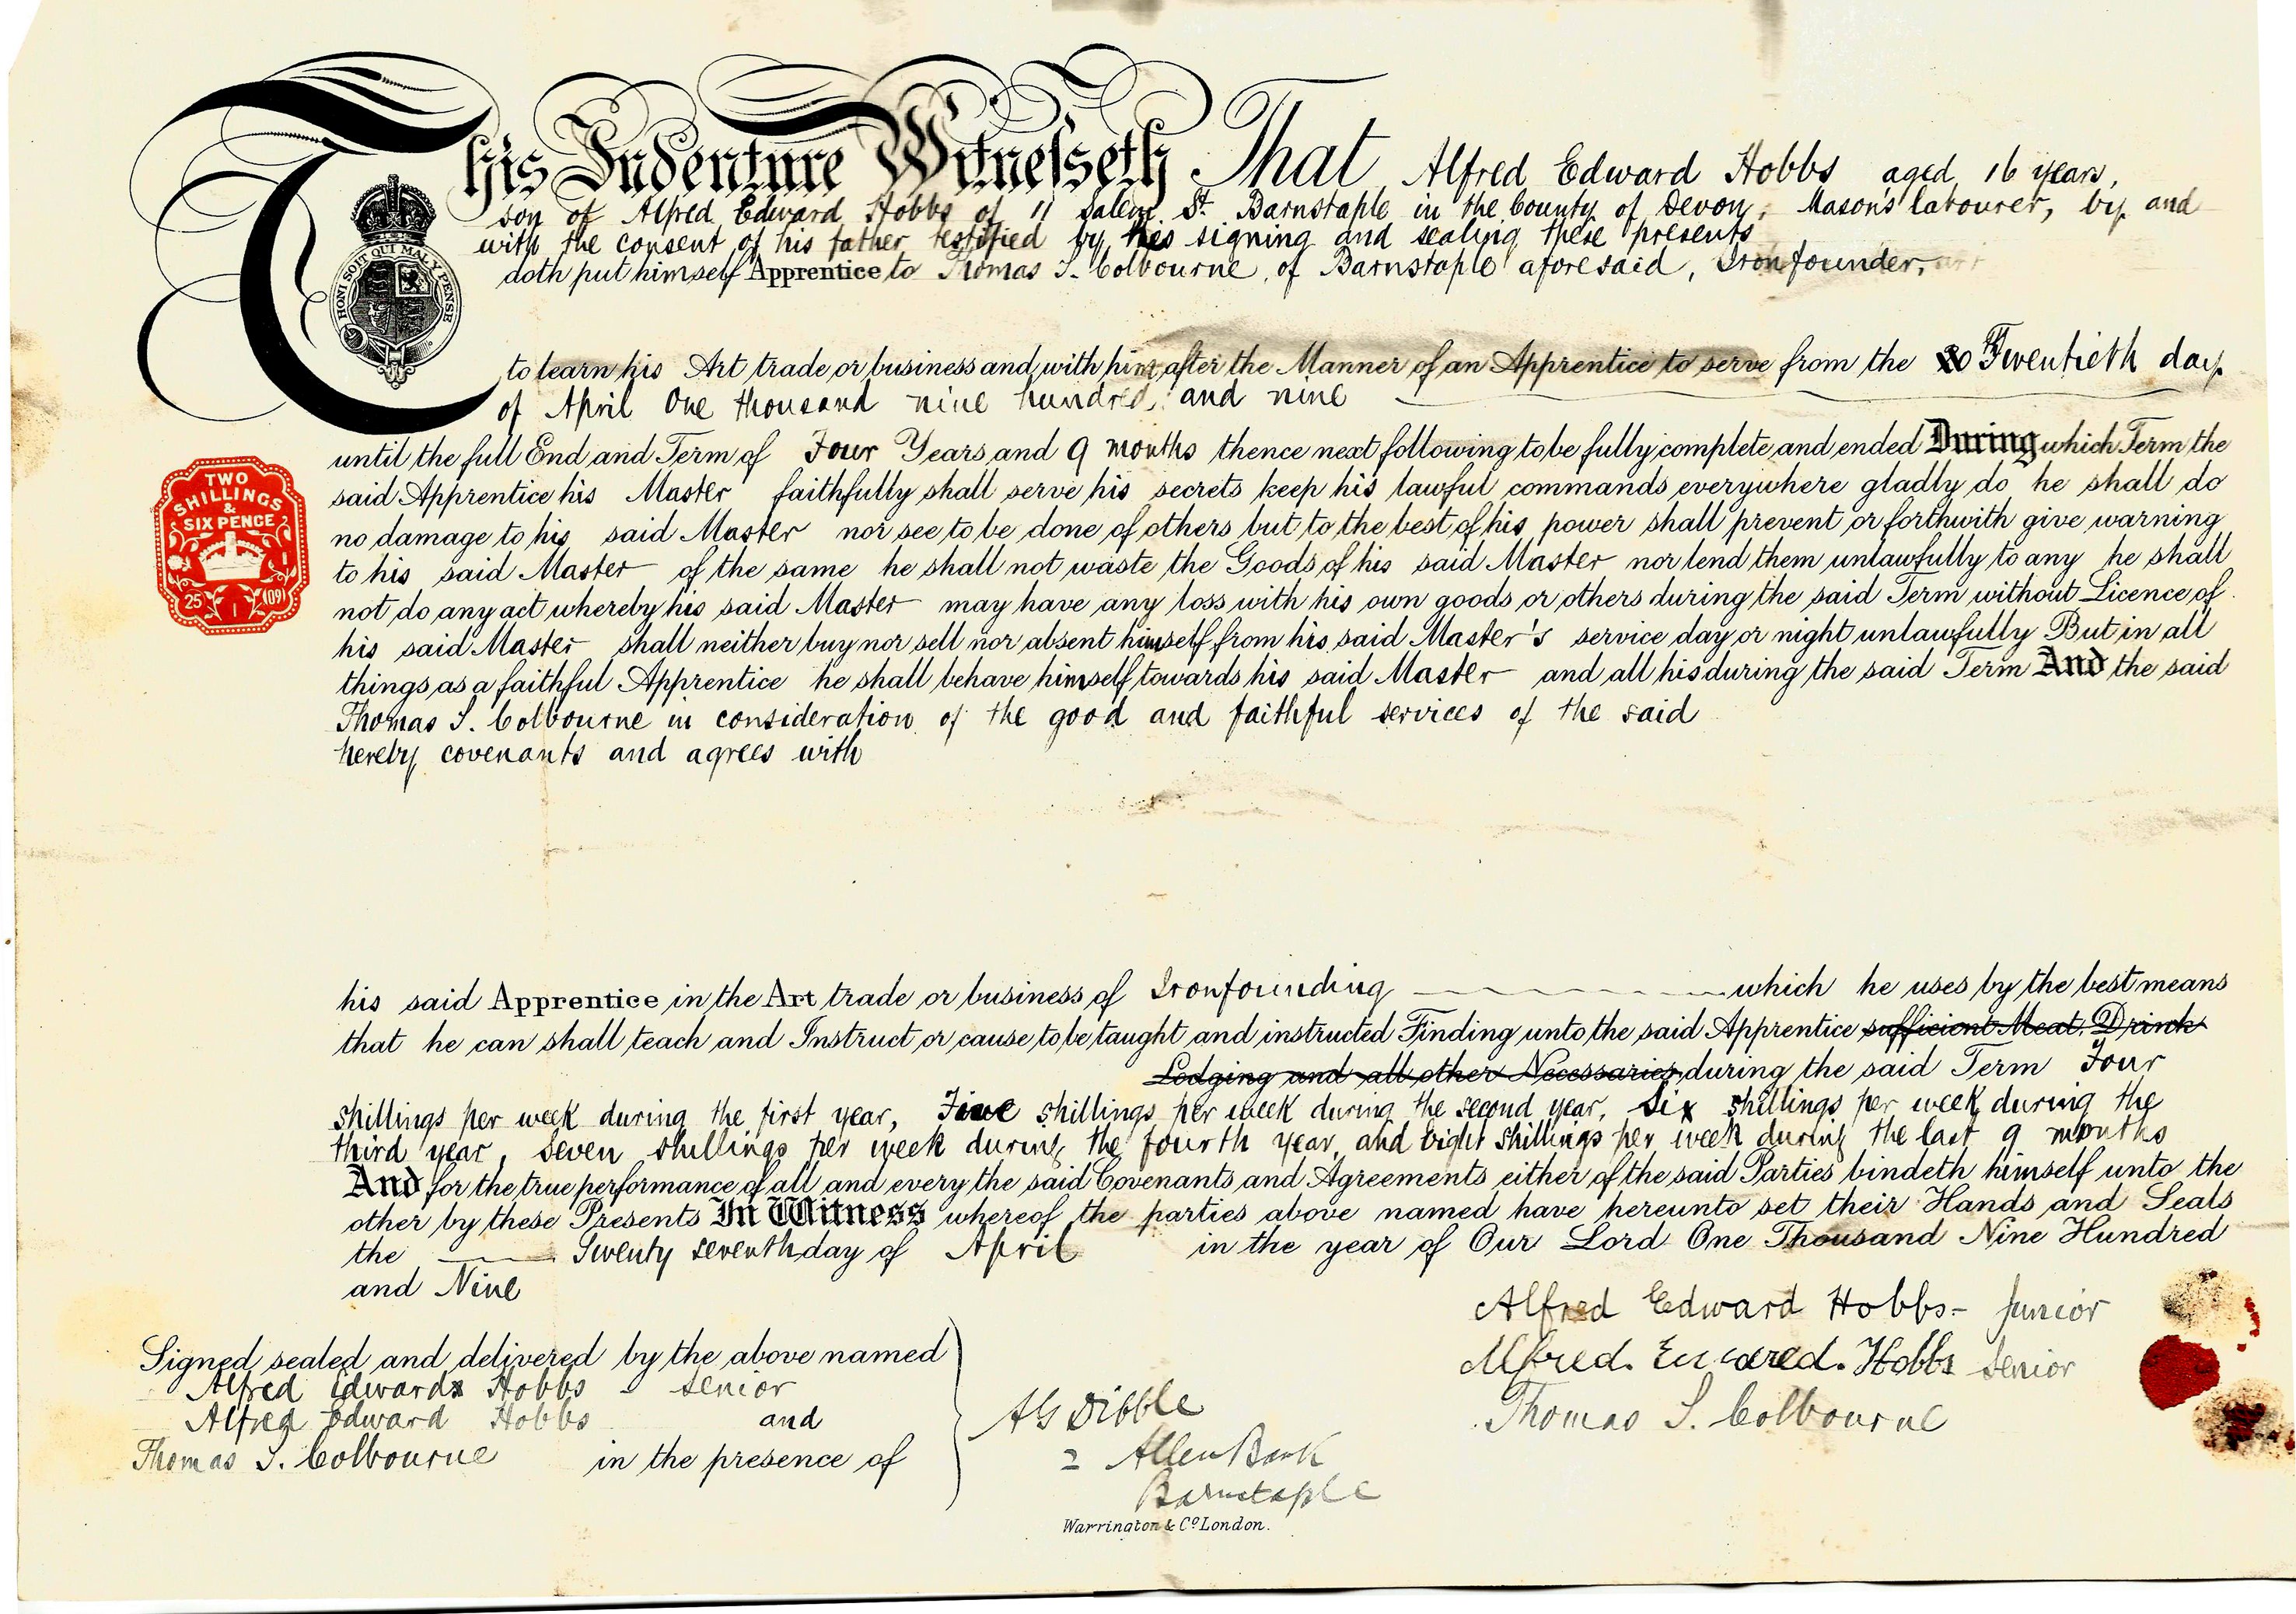 This Indenture Witnesseth That Alfred Edward Hobbs aged 16 years,
son of Alfred Edward Hobbs of 11 Salem St. Barnstaple in the County of Devon, Mason's labourer, by and
with the consent of his father testified by his signing and sealing these presents
doth put himself Apprentice to Thomas S. Colbourne, of Barnstaple aforesaid, Ironfounder,
HONI SOIT QUI MAL Y PENSE
to learn his Art trade or business and with him, after the Manner of an Apprentice to serve from the Twentieth day
of April One thousand nine hundred, and nine
until the full End and Term of Four Years and 9 months thence next following to be fully complete and ended During which Term the
said Apprentice his Master faithfully shall serve his secrets keep his lawful commands everywhere gladly do he shall do
no damage to his said Master nor see to be done of others but to the best of his power shall prevent or forthwith give warning
to his said Master of the same he shall not waste the Goods of his said Master nor lend them unlawfully to any he shall
not do any act whereby his said Master may have any loss with his own goods or others during the said Term without Licence of
his said Master shall neither buy nor sell nor absent himself from his said Master's service day or night unlawfully But in all
things as a faithful Apprentice he shall behave himself towards his said Master and all his during the said Term And the said
Thomas S. Colbourne in consideration of the good and faithful services of the said
hereby covenants and agrees with
TWO
SHILLINGS
&
SIX PENCE
25 1 (09)
his said Apprentice in the Art trade or business of Ironfounding which he uses by the best means
that he can shall teach and Instruct or cause to be taught and instructed Finding unto the said Apprentice sufficient Meat, Drink
Lodging and all other Necessaries during the said Term Four
shillings per week during the first year, Five shillings per week during the second year, Six shillings per week during the
third year, seven shillings per week during the fourth year, and eight shillings per week during the last 9 months
And for the true performance of all and every the said Covenants and Agreements either of the said Parties bindeth himself unto the
other by these Presents In Witness whereof the parties above named have hereunto set their Hands and Seals
the Twenty seventh day of April in the year of Our Lord One Thousand Nine Hundred
and Nine
Alfred Edward Hobbs - Junior
Alfred. Edward. Hobbs Senior
Thomas S. Colbourne
Signed, sealed and delivered by the above named
Alfred Edward Hobbs senior
Alfred Edward Hobbs and
Thomas S. Colbourne in the presence of
Dibble
2 Allen Bank
Barnstaple
Warrington & Co. London.